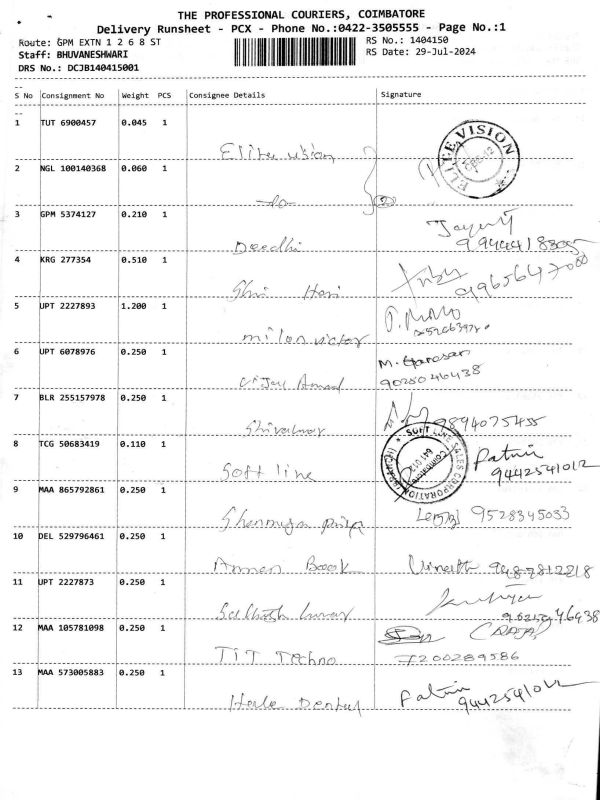 THE PROFESSIONAL COURIERS, COIMBATORE
Delivery Runsheet - PCX - Phone No.:0422-3505555 - Page No.:1
Route: GPM EXTN 1 2 6 8 ST
RS No.: 1404150
Staff: BHUVANESHWARI
RS Date: 29-Jul-2024
DRS No.: DCJB140415001
S No Consignment No Weight PCS Consignee Details Signature
1 TUT 6900457 0.045 1
Elitee vision
ELITEE VISION
2 NGL 100140368 0.060 1
do
3 GPM 5374127 0.210 1
Deedhi
4 KRG 277354 0.510 1
Shri Hari
9965647000
5 UPT 2227893 1.200 1
milon victor
6 UPT 6078976 0.250 1
M.
9025046438
7 BLR 255157978 0.250 1
9894075455
8 TCG 50683419 0.110 1
Soft line
SOFT LINE SALES CORPORATION (BRANCH)
Coimbatore
641 012
9442541012
9 MAA 865792861 0.250 1
Shanmuga priya
9528345033
10 DEL 529796461 0.250 1
Vineeth 9487812218
11 UPT 2227873 0.250 1
9025046438
12 MAA 105781098 0.250 1
TIT Techno
7200289586
13 MAA 573005883 0.250 1
Dental
9442541012